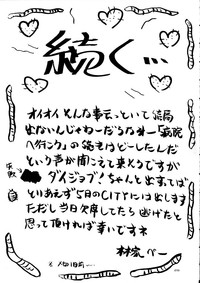 続く…
オイオイそんな事云っといて結局
出ないんじゃねーだろなオー「病院
へ行こう」の続きはどーしたんだ
という声が聞こえて来そうですが
ダイジョブ！ちゃんと出ますでば
とりあえず5日のCITYには出します
ただし当日欠席してたら逃げたと
思って頂ければ幸いですネ
林家ペー